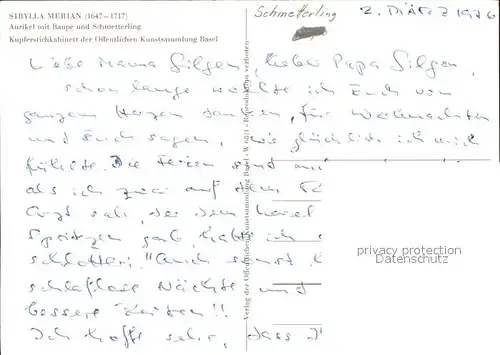 SIBYLLA MERIAN (1647–1717)
Aurikel mit Raupe und Schmetterling
Kupferstichkabinett der Öffentlichen Kunstsammlung Basel
Schmetterling
2. März 1976
Liebe Mama Gilgen, lieber Papa Gilgen,
schon lange wollte ich Euch von
ganzem Herzen danken, für Weihnachten
und Euch sagen, wie glücklich ich mich
fühlte. Die Ferien sind
als ich zwei auf dem
Arzt sah, der dem
Spritzen gab, hatte ich
schlotteri. Auch sonst
schlaflose Nächte und
bessere Zeiten!!
Ich hoffe sehr, dass
Verlag der Öffentlichen Kunstsammlung Basel - Reproduktion verboten
privacy protection
Datenschutz